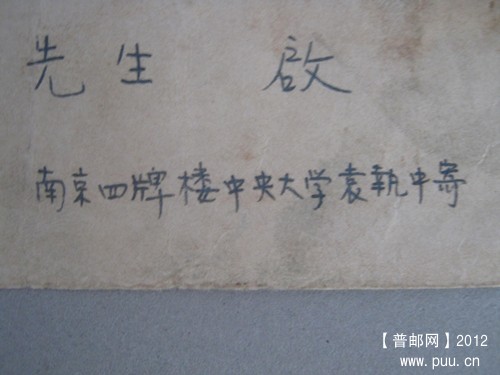 先生 啟
南京四牌楼中央大学袁執中寄
【普邮网】2012
www.puu.cn